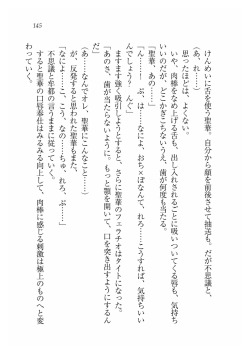 145
けんめいに舌を使う聖華。自分から顔を前後させて抽送も。だが不思議と、
思ったほどは、よくない。
「あ、れ……」
いや、肉棒をなめ上げる舌も、出し入れされるごとに吸いついてくる唇も、気持ち
いいのだが、どこかぎこちないうえ、歯が何度も当たる。
「聖華、あの……」
「ん……！　ぷ、……はなに、よ、おち×ぽなんて、れろ……こうすれば、気持ちいい
んでしょう？　んく」
ますます強く吸引しようとすると、さらに聖華のフェラチオはタイトになった。
「あのさ、歯が当たらないように。もっと顎を開いて、口を突き出すようにするん
だ」
「あ……なんでオレ、聖華にこんなこと……」
が、反発すると思われた聖華もまた、
「なによ……こ、こう、なの……ちゅ、れろ、ぷ……」
不思議と牟都の言うままに従っていく。
すると聖華の口唇奉仕はみるみる向上して、肉棒に感じる刺激は極上のものへと変
わっていく。